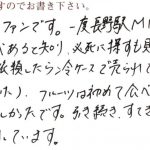 すのでお書き下さい。
ファンです。一度長野駅MI
があると知り、必死に探すも見
転換したら冷ケースで売られて
た)。フルーツは初めて食べ
しかったです。引き続き、すてき
しています。